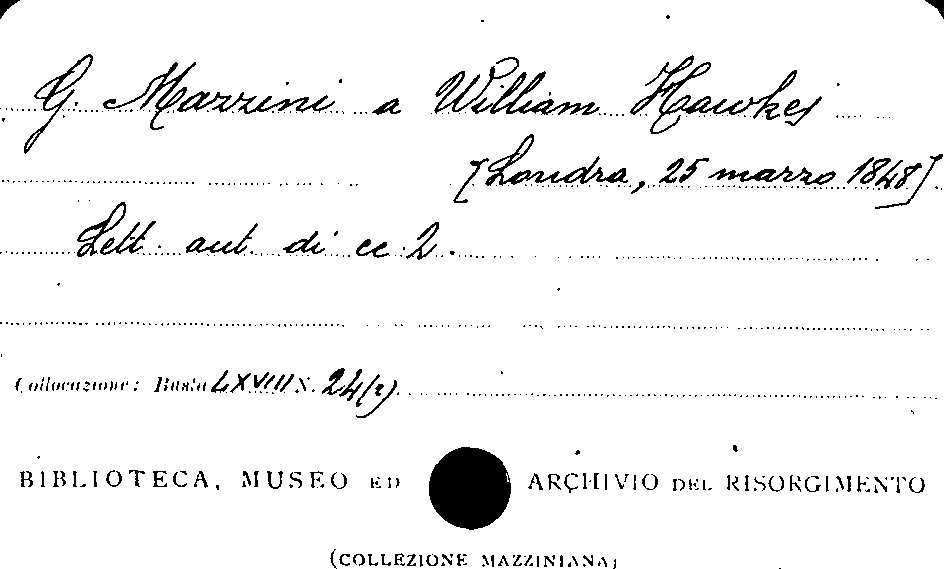 G. Mazzini a William Hawkes
[Londra, 25 marzo 1848]
Lett. aut. di cc. 2.
Collocazione: Busta LXVIII N. 24(2)
BIBLIOTECA, MUSEO ED ARCHIVIO DEL RISORGIMENTO
(COLLEZIONE MAZZINIANA)